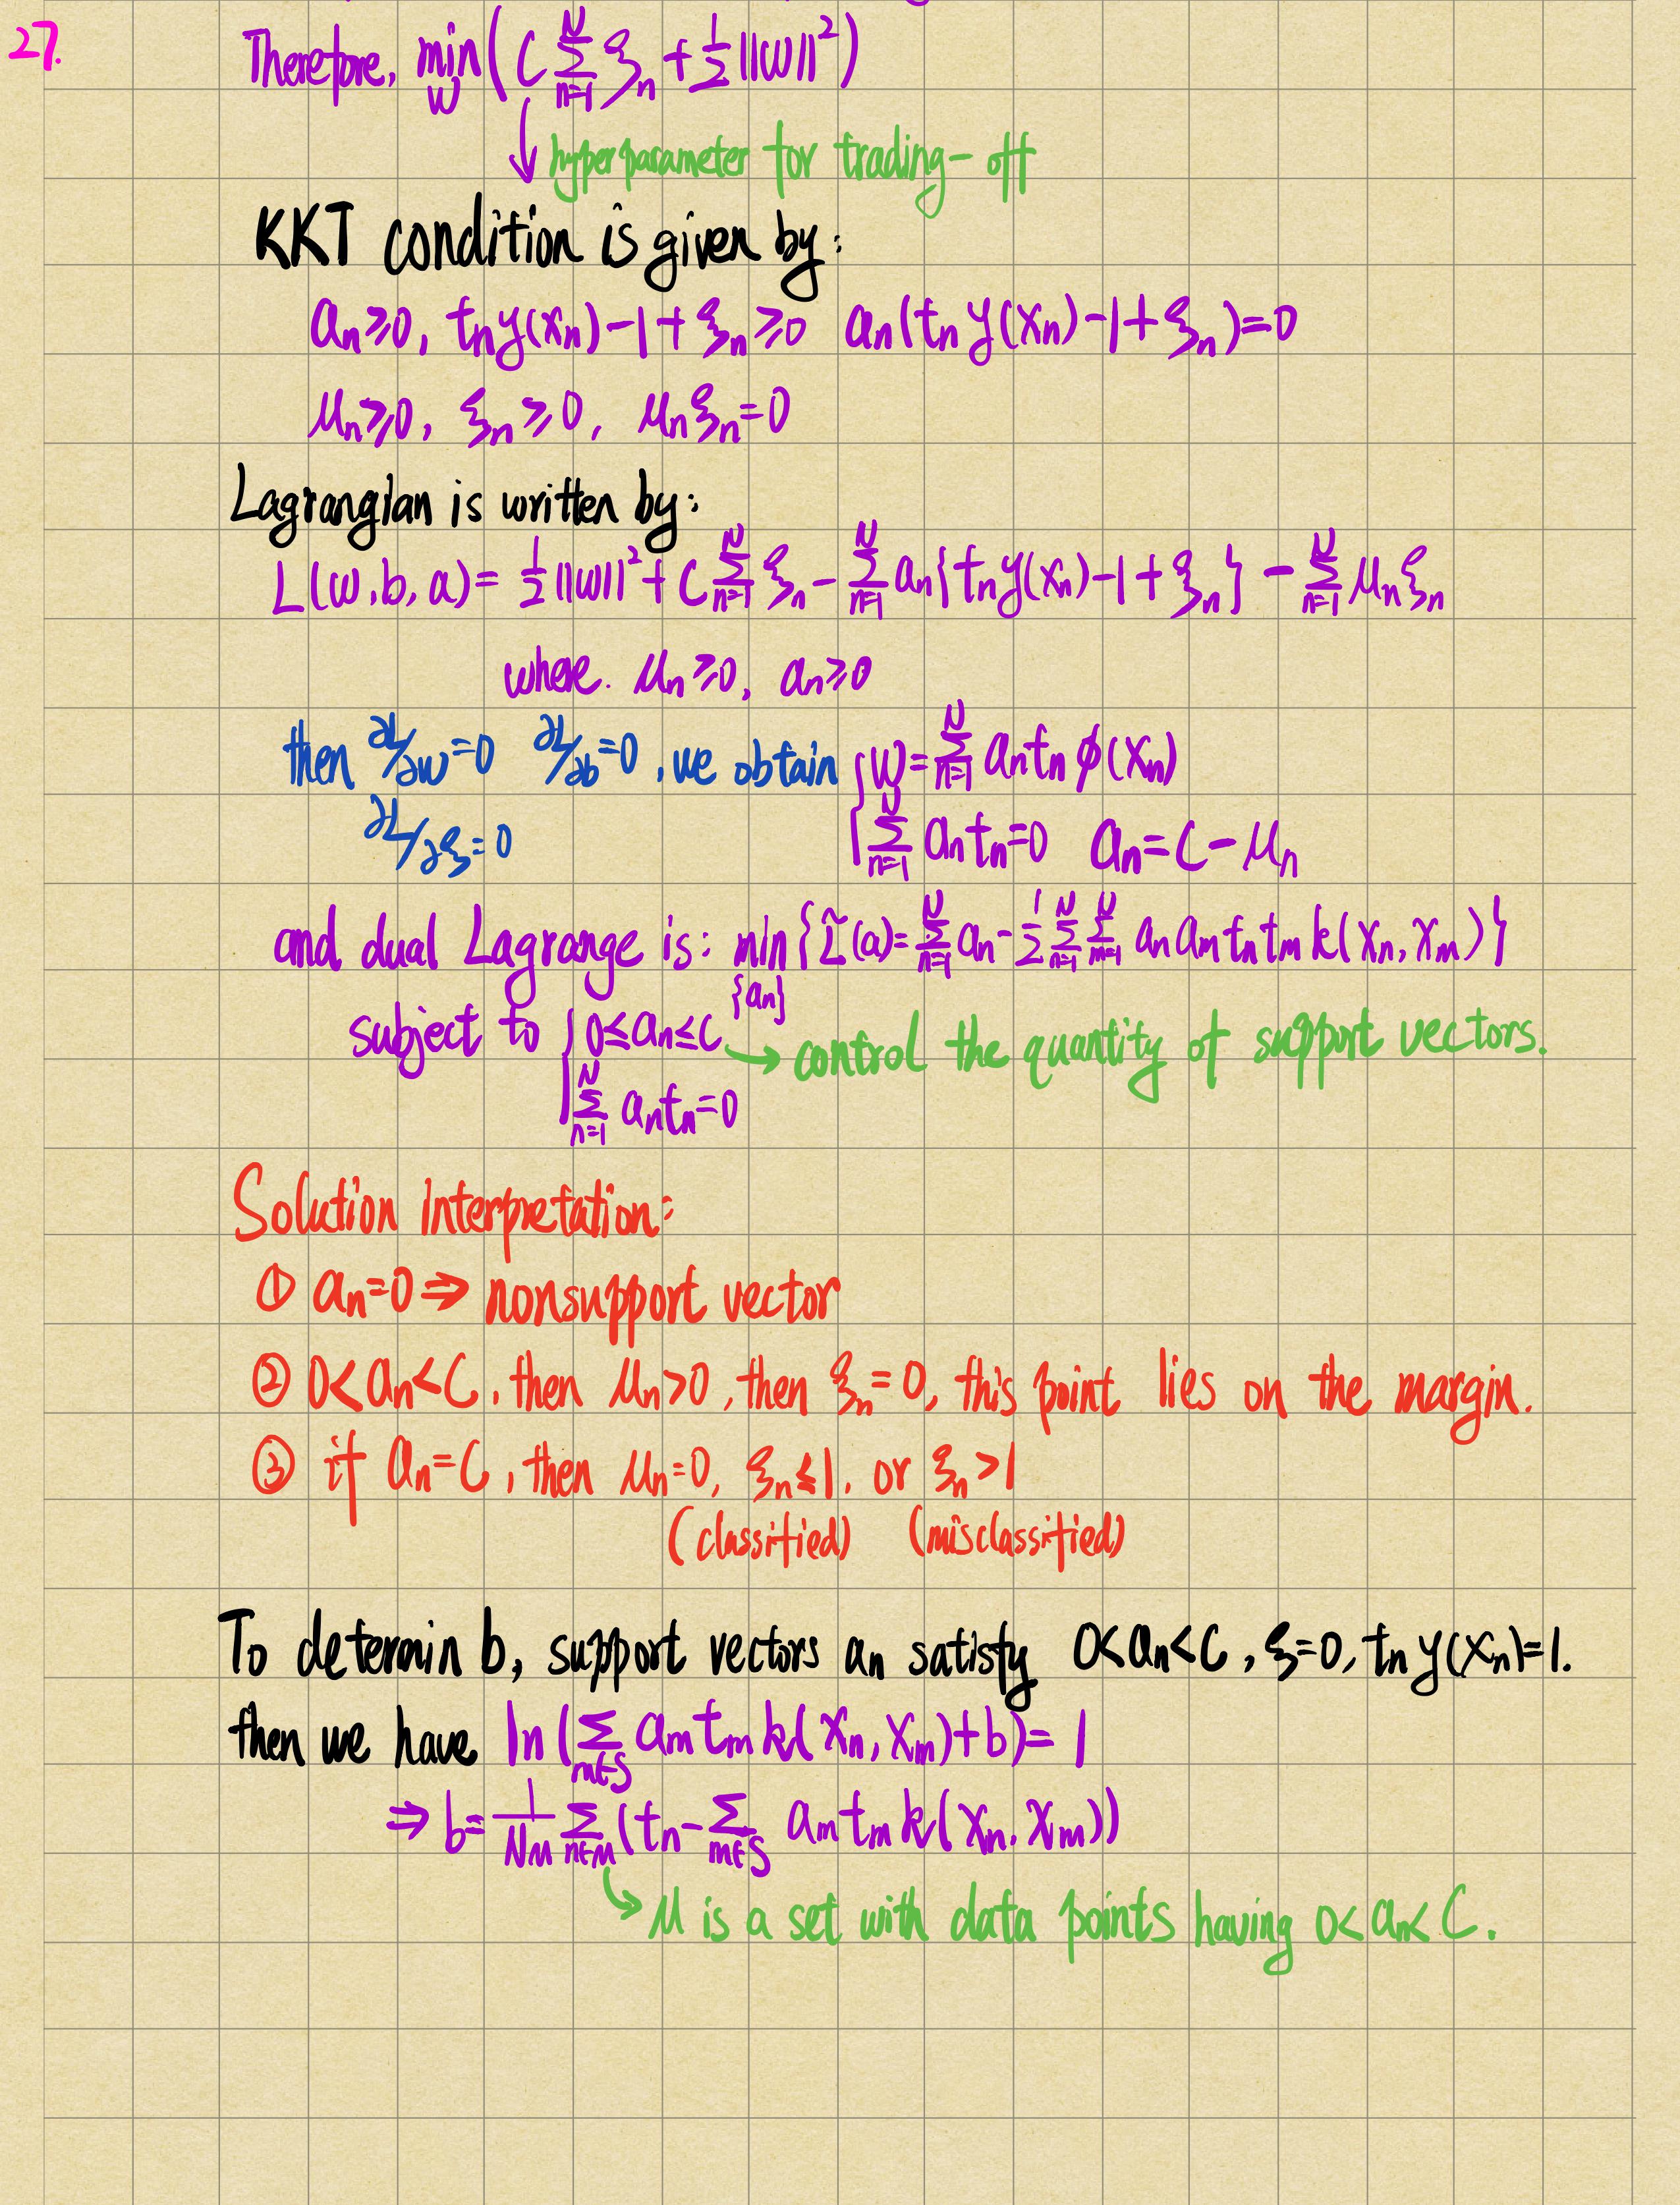 27.
Therefore, min_w (C Σ_{n=1}^{N} ξ_n + 1/2 ||w||²)
↓ hyperparameter for trading-off
KKT condition is given by:
a_n ≥ 0, t_n y(x_n) - 1 + ξ_n ≥ 0 a_n(t_n y(x_n) - 1 + ξ_n) = 0
μ_n ≥ 0, ξ_n ≥ 0, μ_n ξ_n = 0
Lagrangian is written by:
L(w, b, a) = 1/2 ||w||² + C Σ_{n=1}^{N} ξ_n - Σ_{n=1}^{N} a_n{t_n y(x_n) - 1 + ξ_n} - Σ_{n=1}^{N} μ_n ξ_n
where. μ_n ≥ 0, a_n ≥ 0
then ∂L/∂w = 0 ∂L/∂b = 0, we obtain { w = Σ_{n=1}^{N} a_n t_n φ(x_n)
∂L/∂ξ = 0 Σ_{n=1}^{N} a_n t_n = 0 a_n = C - μ_n
and dual Lagrange is: min_{a_n} {L̃(a) = Σ_{n=1}^{N} a_n - 1/2 Σ_{n=1}^{N} Σ_{m=1}^{N} a_n a_m t_n t_m k(x_n, x_m)}
subject to { 0 ≤ a_n ≤ C → control the quantity of support vectors.
Σ_{n=1}^{N} a_n t_n = 0
Solution Interpretation:
① a_n = 0 ⇒ nonsupport vector
② 0 < a_n < C, then μ_n > 0, then ξ_n = 0, this point lies on the margin.
③ if a_n = C, then μ_n = 0, ξ_n ≤ 1, or ξ_n > 1
(classified) (misclassified)
To determin b, support vectors a_n satisfy 0 < a_n < C, ξ = 0, t_n y(x_n) = 1.
then we have ln(Σ_{m∈S} a_m t_m k(x_n, x_m) + b) = 1
⇒ b = 1/N_M Σ_{n∈M} (t_n - Σ_{m∈S} a_m t_m k(x_n, x_m))
↳ M is a set with data points having 0 < a_n < C.